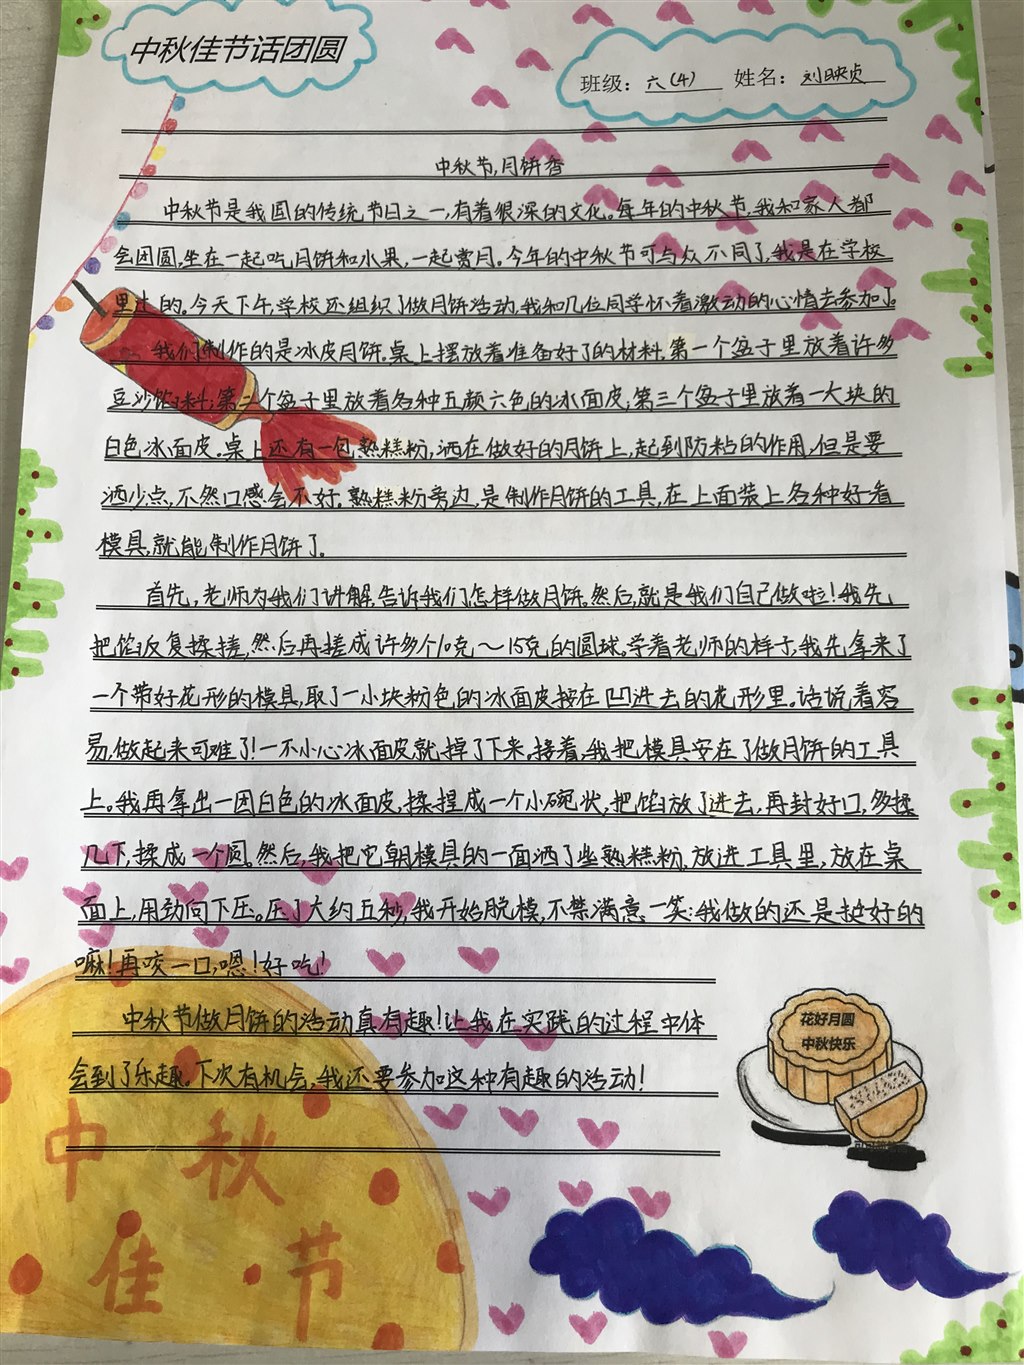 中秋佳节话团圆
班级：六(4) 姓名：刘映贞
中秋节,月饼香
中秋节是我国的传统节日之一,有着很深的文化。每年的中秋节,我和家人都
会团圆,坐在一起吃月饼和水果,一起赏月。今年的中秋节可与众不同了,我是在学校
里过的。今天下午,学校还组织了做月饼活动,我和几位同学怀着激动的心情去参加了。
我们制作的是冰皮月饼。桌上摆放着准备好了的材料,第一个盆子里放着许多
豆沙馅料;第二个盆子里放着各种五颜六色的冰面皮;第三个盆子里放着一大块的
白色冰面皮。桌上还有一包熟糕粉,洒在做好的月饼上,起到防粘的作用,但是要
洒少点,不然口感会不好。熟糕粉旁边,是制作月饼的工具,在上面装上各种好看
模具,就能制作月饼了。
首先,老师为我们讲解,告诉我们怎样做月饼。然后,就是我们自己做啦!我先
把馅反复揉搓,然后再搓成许多个10克～15克的圆球。学着老师的样子,我先拿来了
一个带好花形的模具,取了一小块粉色的冰面皮按在凹进去的花形里。话说着容
易,做起来可难了!一不小心冰面皮就掉了下来。接着,我把模具安在了做月饼的工具
上。我再拿出一团白色的冰面皮,揉捏成一个小碗状,把馅放了进去,再封好口,多揉
几下,揉成一个圆。然后,我把它朝模具的一面洒了些熟糕粉,放进工具里,放在桌
面上,用劲向下压。压了大约五秒,我开始脱模,不禁满意一笑:我做的还是挺好的
嘛!再咬一口,嗯!好吃!
中秋节做月饼的活动真有趣!让我在实践的过程中体
会到了乐趣。下次有机会,我还要参加这种有趣的活动!
花好月圆
中秋快乐
中秋
佳节